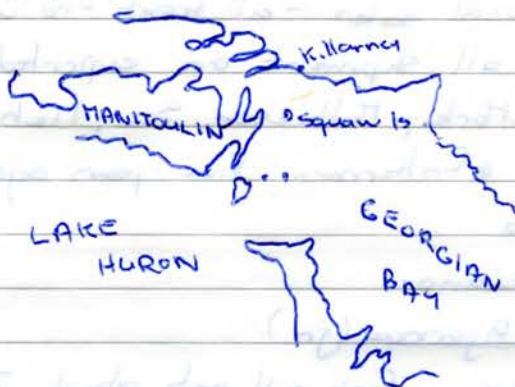 Killarney
MANITOULIN
Squaw Is
LAKE
HURON
GEORGIAN
BAY